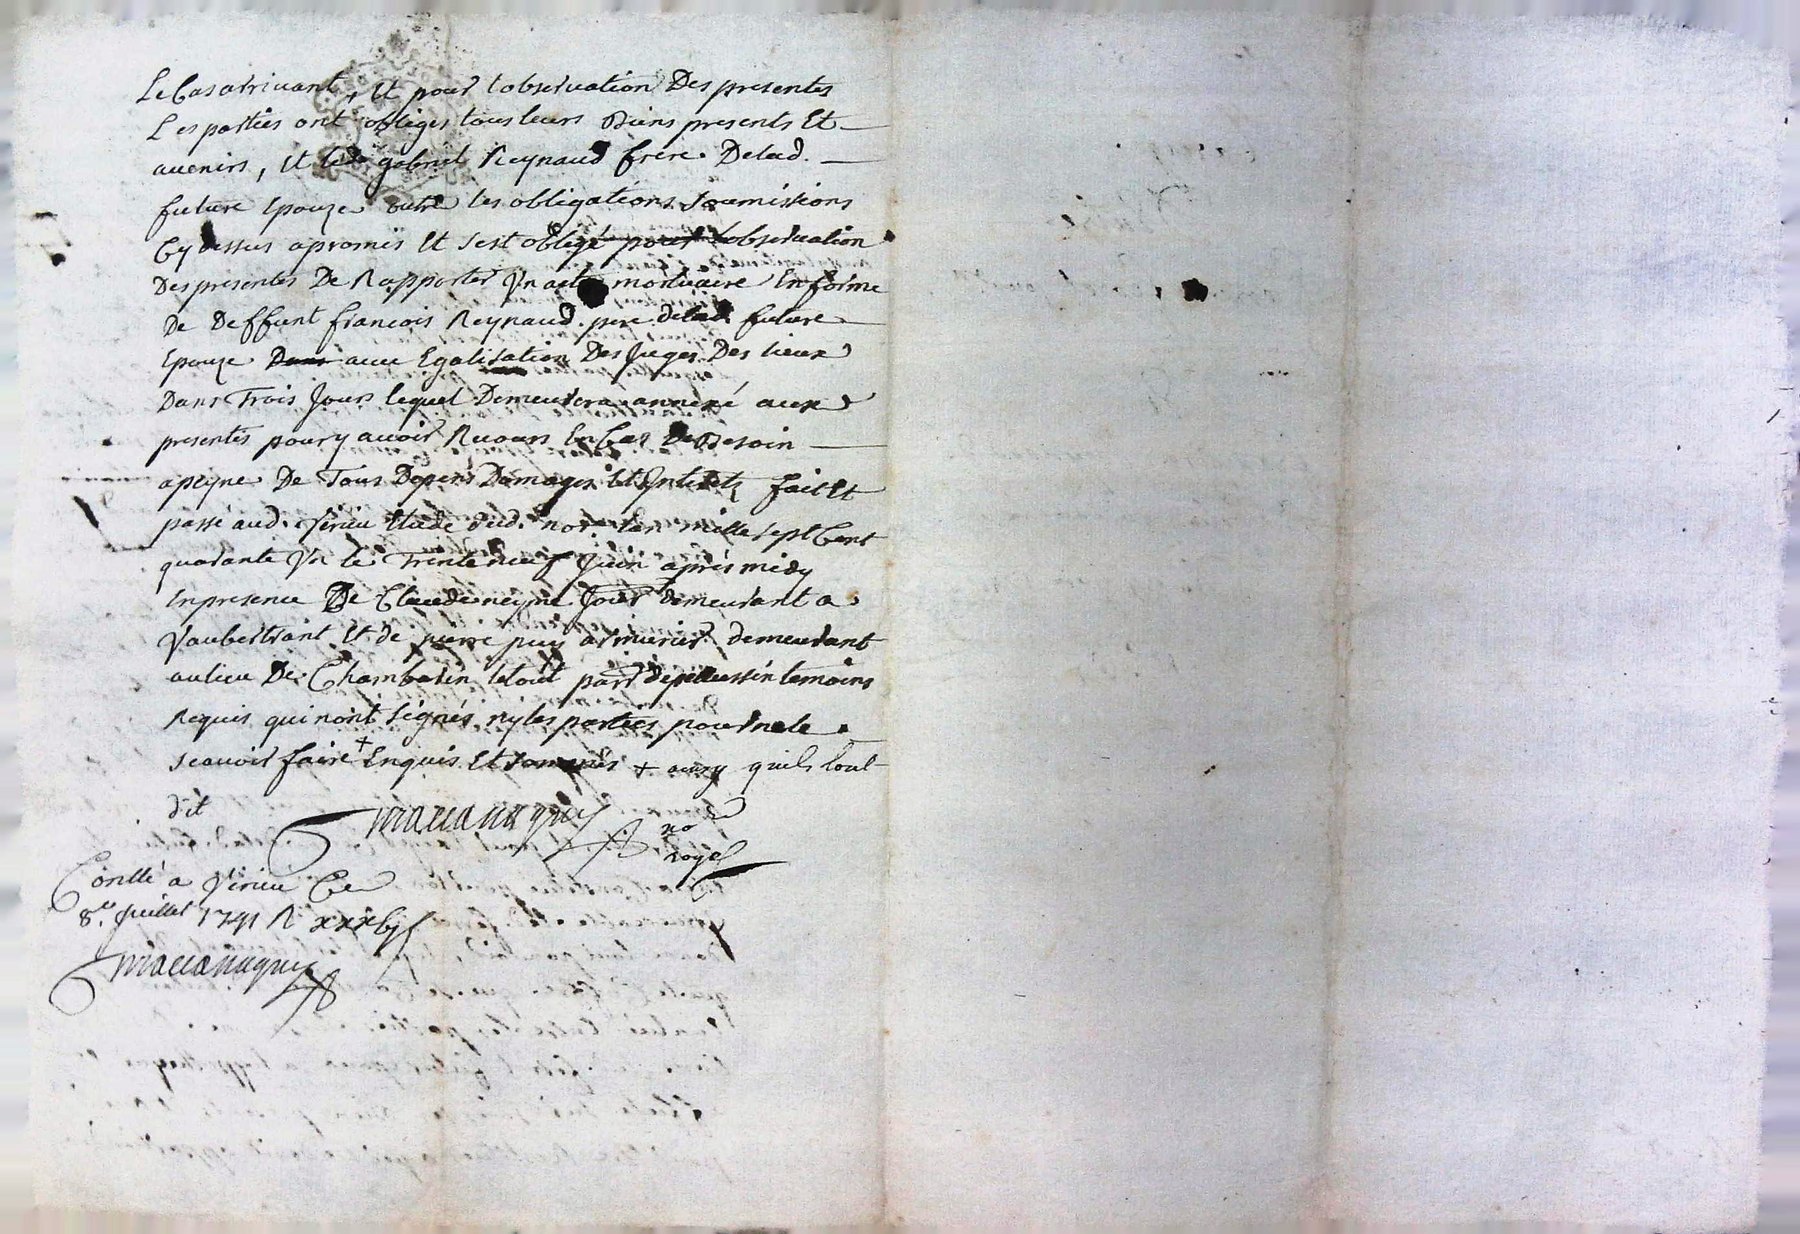 Le Cas arrivant, Et pour lobservation Des presentes
Les parties ont obligés tous leurs Biens presents Et
avenirs, Et led. gabriel Reynaud frere Delad.
future Epouze outre les obligations Soumissions
Cy dessus a promis Et s'est obligé pour lobservation
Des presentes De Rapporter Un acte mortuaire En forme
De Deffunt francois Reynaud pere delad. future
Epouze avec Egalisation Des Juges Des lieux
Dans Trois Jours lequel Demeurera annexé aux
presentes pour y avoir Recours En Cas De Besoin
a peyne De Tous Depens Domages Et Interets fait Et
passé aud. Virieu Etude dud. no.re lan mille sept Cent
quarante Un le Trente neuf Juin aprés midy
En presence De Claude neyme demeurant a
Vaubertrant Et de pierre puy armurier demeurant
au lieu De Chambarin le tout parr. de pelussin temoins
Requis qui n'ont Signés ny les parties pour ne le
scavoir faire + Enquis Et sommés + ainsy quils lont
dit
no.re
royal
Conllé a Virieu Ce
8.e Juillet 1741 R